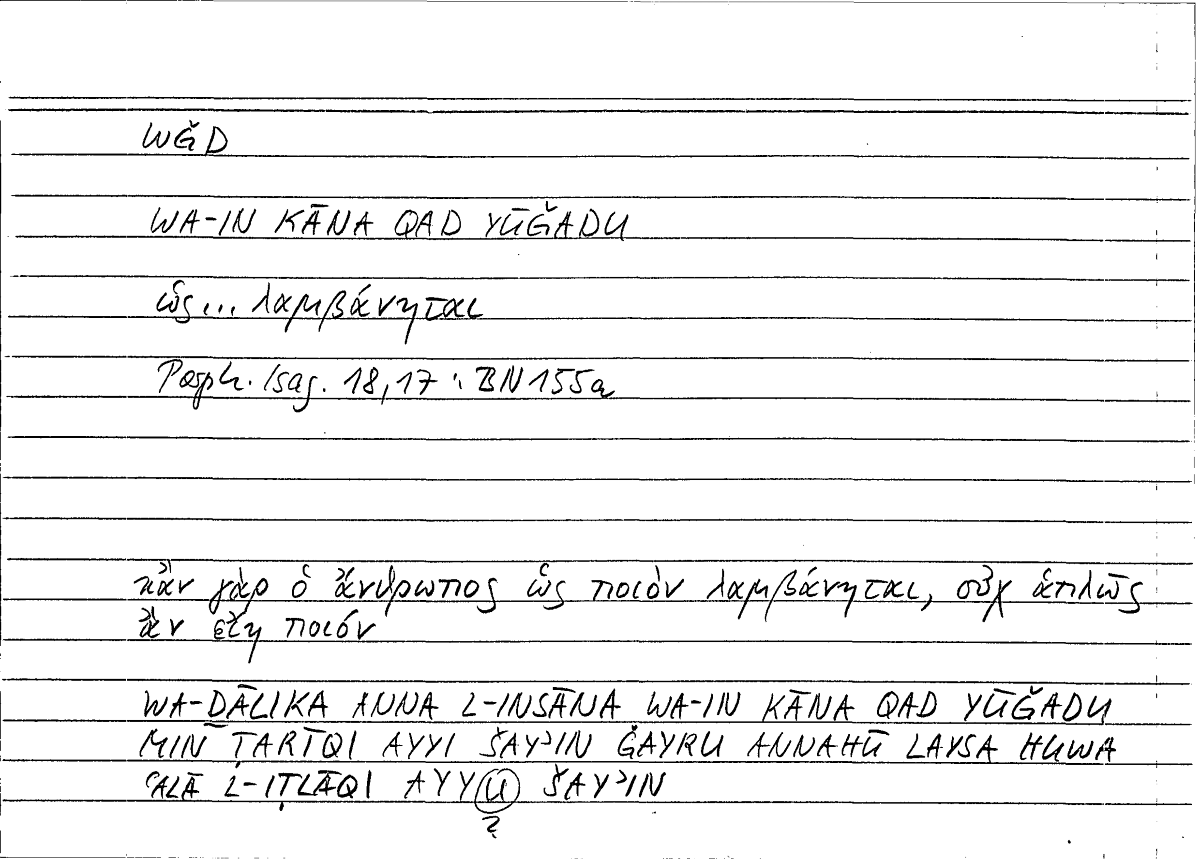 WĞD
WA-IN KĀNA QAD YŪĞADU
ὡς... λαμβάνηται
Porph. Isag. 18,17 : BN 155a
κἂν γὰρ ὁ ἄνθρωπος ὡς ποιὸν λαμβάνηται, οὐχ ἁπλῶς
ἂν εἴη ποιόν
WA-ḎĀLIKA ANNA L-INSĀNA WA-IN KĀNA QAD YŪĞADU
MIN ṬARĪQI AYYI ŠAYʾIN ĠAYRU ANNAHŪ LAYSA HUWA
ʿALĀ L-IṬLĀQI AYYU ŠAYʾIN
?